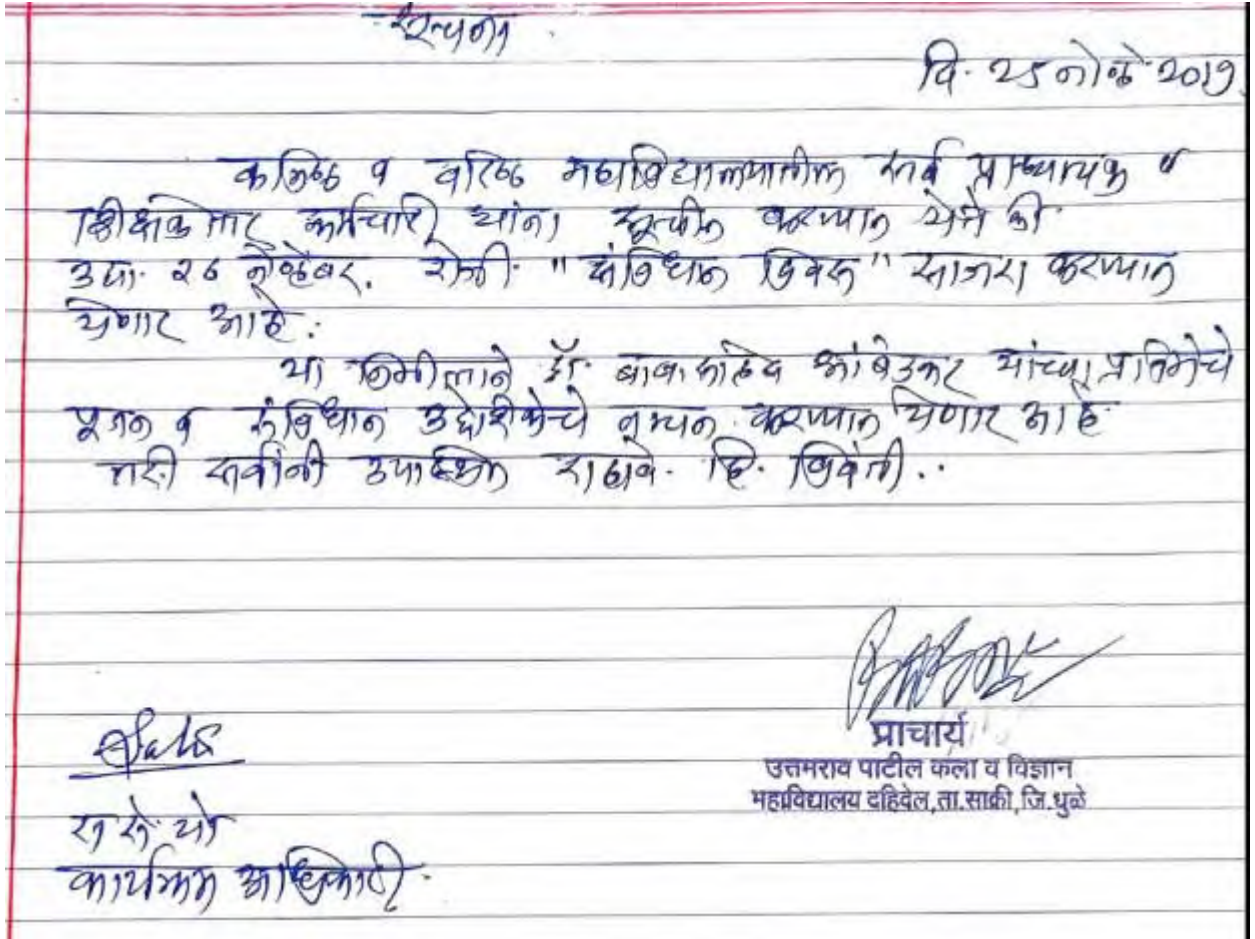 सूचना
दि. २५ नोव्हे २०१९
कनिष्ठ व वरिष्ठ महाविद्यालयातील सर्व प्राध्यापक व
शिक्षकेत्तर कर्मचारी यांना सूचीत करण्यात येते की
उद्या. २६ नोव्हेंबर. रोजी. "संविधान दिवस" साजरा करण्यात
येणार आहे.
या निमीत्ताने डॉ. बाबासाहेब आंबेडकर यांच्या प्रतिमेचे
पूजन व संविधान उद्देशीकेचे वाचन करण्यात येणार आहे
तरी सर्वांनी उपस्थित राहावे. हि. विनंती..
प्राचार्य
उत्तमराव पाटील कला व विज्ञान
महाविद्यालय दहिवेल, ता.साक्री, जि.धुळे
रा से. यो
कार्यक्रम अधिकारी.